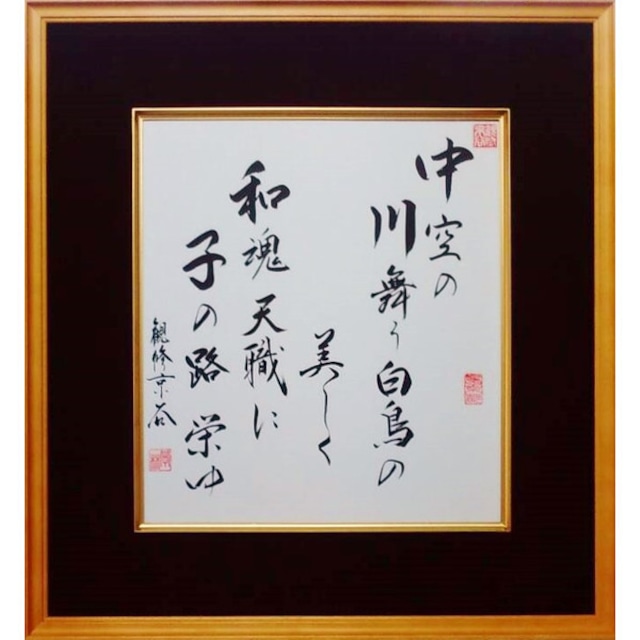 中空の
川舞う白鳥の
美しく
和魂天職に
子の路栄ゆ
觀修京谷